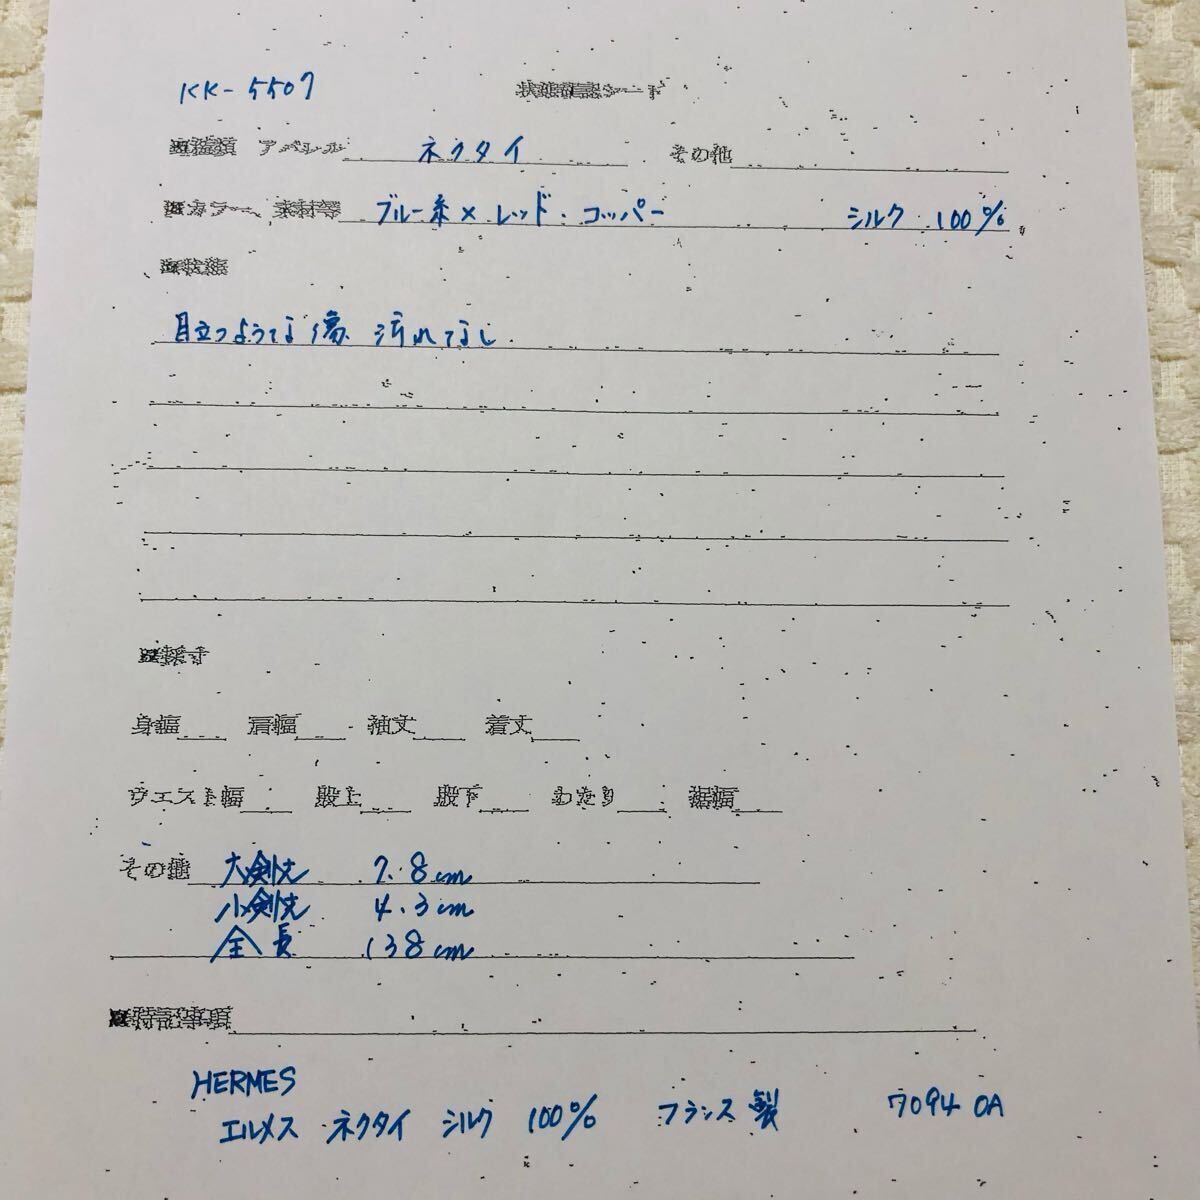 KK-5507
状態確認シート
■種類 アパレル ネクタイ その他
■カラー、素材等 ブルー系×レッド・コッパー シルク 100%
■状態
目立つような傷 汚れてなし
■採寸
身幅 肩幅 袖丈 着丈
ウエスト幅 股上 股下 わたり 裾幅
その他 大剣丈 7.8cm
小剣丈 4.3cm
全長 138cm
■特記事項
HERMES
エルメス ネクタイ シルク 100% フランス製 7094 OA